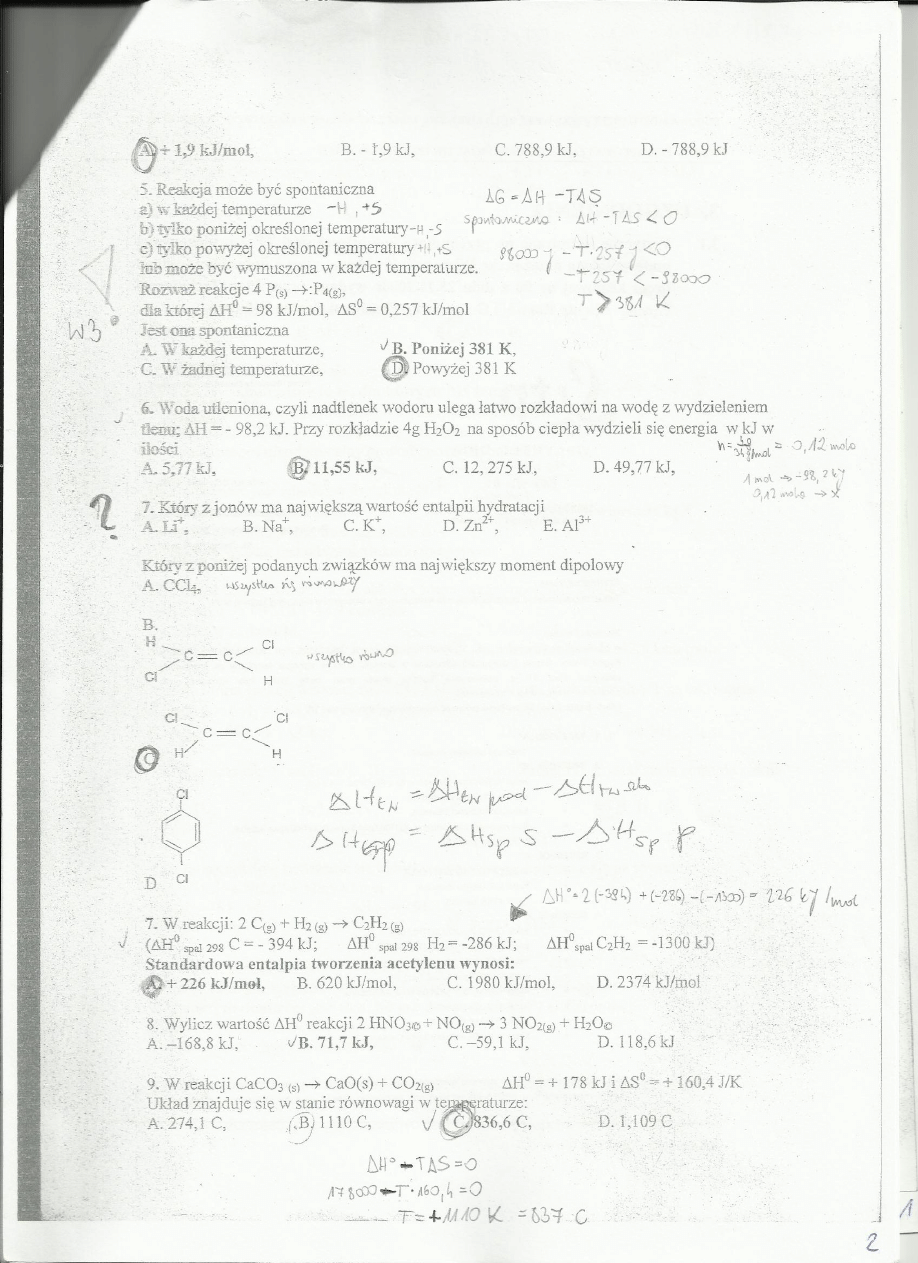 A. + 1,9 kJ/mol, B. - 1,9 kJ, C. 788,9 kJ, D. - 788,9 kJ
5. Reakcja może być spontaniczna ΔG = ΔH - TΔS
a) w każdej temperaturze -H , +S
spontaniczna : ΔH - TΔS < 0
b) tylko poniżej określonej temperatury -H, -S
c) tylko powyżej określonej temperatury +H, +S
98000 J - T·257 J < 0
lub może być wymuszona w każdej temperaturze.
-T 257 < -98000
Rozważ reakcje 4 P(s) —>:P4(g),
T > 381 K
dla której ΔH⁰ = 98 kJ/mol, ΔS⁰ = 0,257 kJ/mol
W3
Jest ona spontaniczna
A. W każdej temperaturze, √ B. Poniżej 381 K,
C. W żadnej temperaturze, D. Powyżej 381 K
6. Woda utleniona, czyli nadtlenek wodoru ulega łatwo rozkładowi na wodę z wydzieleniem
tlenu; ΔH = - 98,2 kJ. Przy rozkładzie 4g H2O2 na sposób ciepła wydzieli się energia w kJ w
ilości
= 0,12 mola
A. 5,77 kJ, B. 11,55 kJ, C. 12, 275 kJ, D. 49,77 kJ,
1 mol -> -98,2 kJ
0,12 mola -> x
?
7. Który z jonów ma największą wartość entalpii hydratacji
A. Li⁺, B. Na⁺, C. K⁺, D. Zn²⁺, E. Al³⁺
Który z poniżej podanych związków ma największy moment dipolowy
A. CCl4, wszystko się równoważy
B.
H Cl
C = C wszystko równo
Cl H
Cl Cl
C = C
C H H
Cl
D Cl
ΔH°= 2 (-394) + (-286) - (-1300) = 226 kJ /mol
7. W reakcji: 2 C(g) + H2 (g) —> C2H2 (g)
√ (ΔH⁰ spal 298 C = - 394 kJ; ΔH⁰ spal 298 H2 = -286 kJ; ΔH⁰spal C2H2 = -1300 kJ)
Standardowa entalpia tworzenia acetylenu wynosi:
A. + 226 kJ/mol, B. 620 kJ/mol, C. 1980 kJ/mol, D. 2374 kJ/mol
8. Wylicz wartość ΔH⁰ reakcji 2 HNO3© + NO(g) —> 3 NO2(g) + H2O©
A. –168,8 kJ, √B. 71,7 kJ, C. –59,1 kJ, D. 118,6 kJ
9. W reakcji CaCO3 (s) —> CaO(s) + CO2(g) ΔH⁰ = + 178 kJ i ΔS⁰ = + 160,4 J/K
Układ znajduje się w stanie równowagi w temperaturze:
A. 274,1 C, B. 1110 C, √ C. 836,6 C, D. 1,109 C
ΔH° - TΔS = 0
178000 - T·160,4 = 0
T = +1110 K = 837 C
1
2